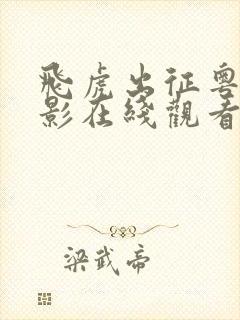 飛虎出征粵
影在綫觀看
梁武帝